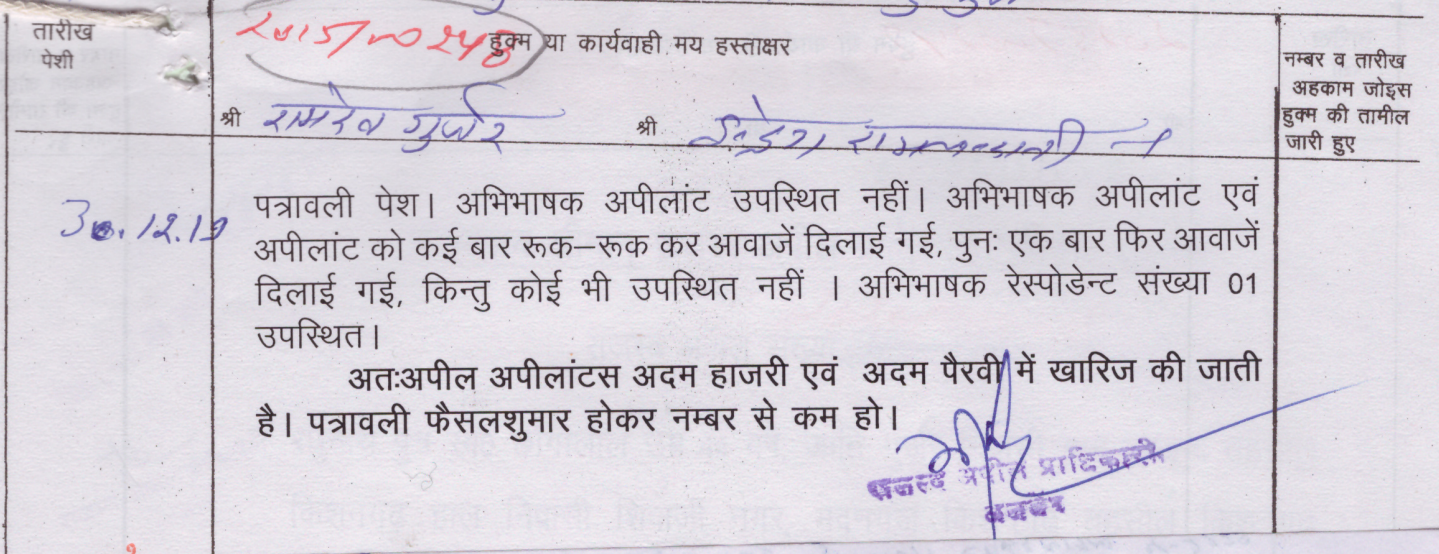 तारीख
पेशी
2015/00248
हुक्म या कार्यवाही मय हस्ताक्षर
नम्बर व तारीख
अहकाम जोइस
हुक्म की तामील
जारी हुए
श्री रामदेव गुर्जर श्री
30.12.19
पत्रावली पेश। अभिभाषक अपीलांट उपस्थित नहीं। अभिभाषक अपीलांट एवं
अपीलांट को कई बार रूक–रूक कर आवाजें दिलाई गई, पुनः एक बार फिर आवाजें
दिलाई गई, किन्तु कोई भी उपस्थित नहीं । अभिभाषक रेस्पोडेन्ट संख्या 01
उपस्थित।
अतःअपील अपीलांटस अदम हाजरी एवं अदम पैरवी में खारिज की जाती
है। पत्रावली फैसलशुमार होकर नम्बर से कम हो।
राजस्व अपील प्राधिकारी
अजमेर